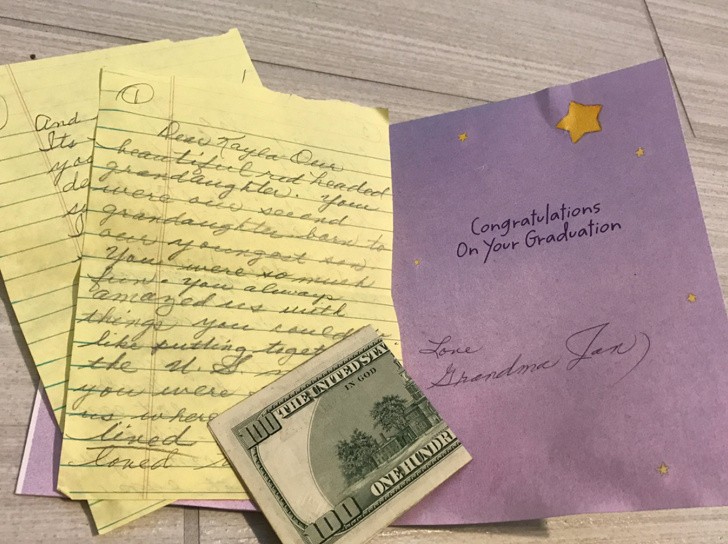 1
And
Its
you
①
Dear Kayla - Our
beautiful red headed
grandaughter. You
were our second
grandaughter born to
our youngest son
You were so much
fun. You always
amazed us with
things you could
like putting toget
the U.S
you were
us where
lived
loved
THE UNITED STA
IN GOD
100
ONE HUNDR
100
Congratulations
On Your Graduation
Love
Grandma Jan